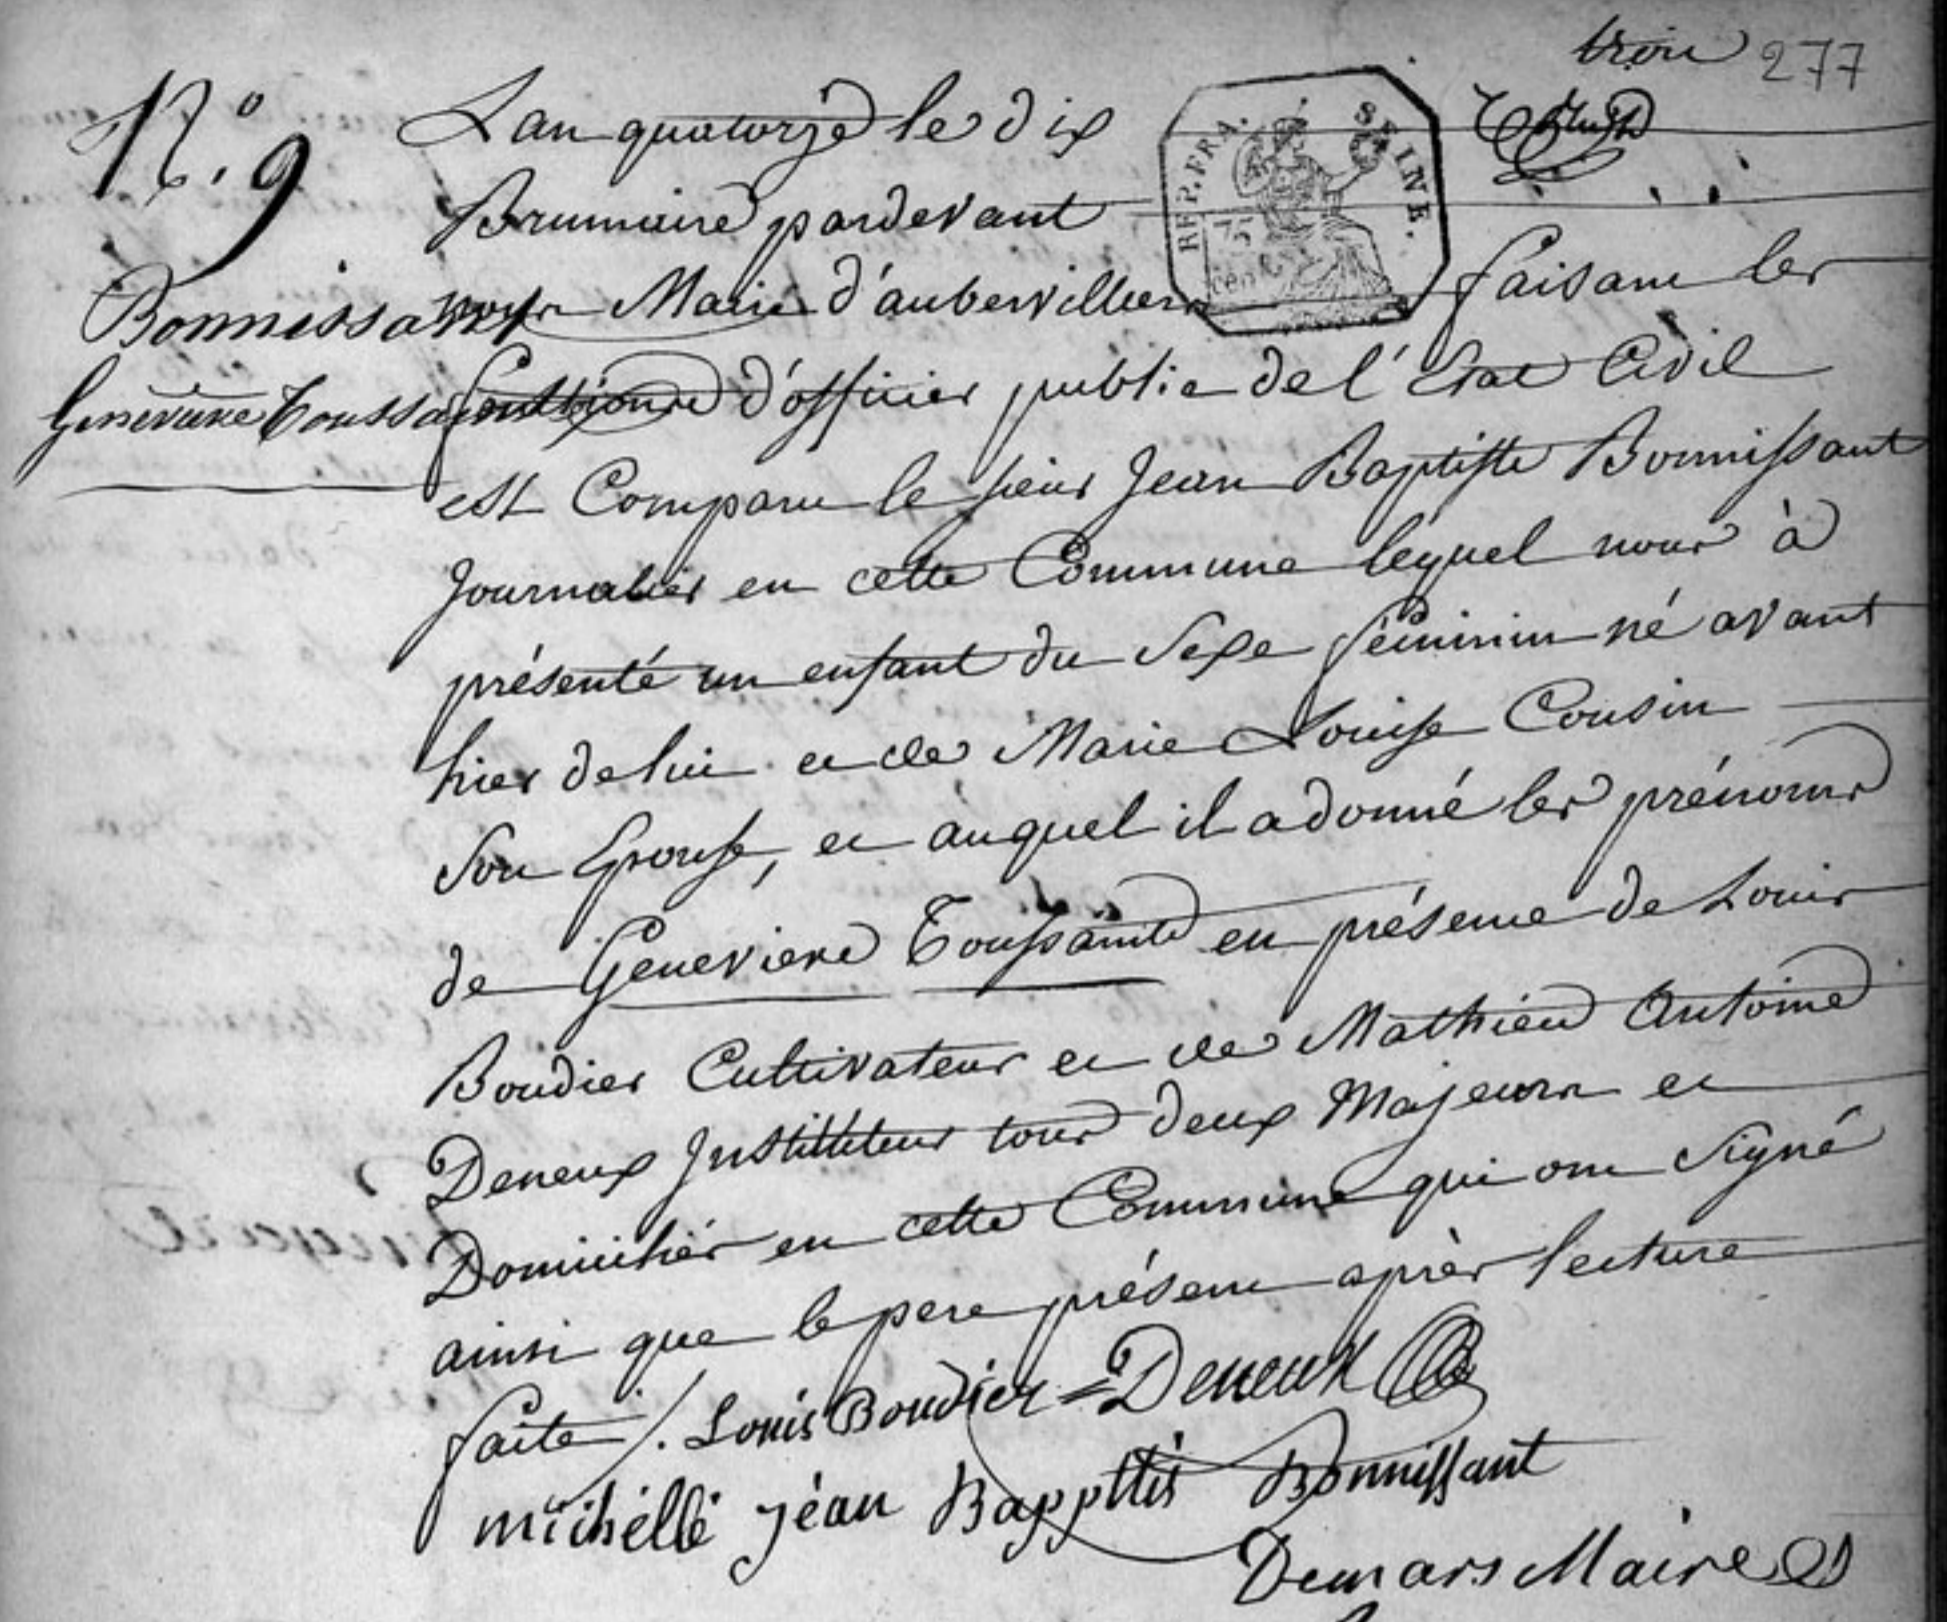 trois 277
N.o 9
L'an quatorze le dix
Brumaire pardevant
REP. FRA. SEINE.
75
cen
Maire d'aubervilliers faisant les
Bonnissant
Genevieve Toussainte
fonctions d'officier public de l'Etat Civil
est Comparu le sieur Jean Baptiste Bonnissant
Journalier en cette Commune lequel nous à
présenté un enfant du Sexe féminin né avant
hier de lui et de Marie Louise Cousin
Son Epouse, et auquel il a donné les prénoms
de Genevieve Toussainte en présence de Louis
Boudier Cultivateur et de Mathieu Antoine
Deneux Instituteur tous deux Majeurs et
Domiciliés en cette Commune qui ont Signé
ainsi que le pere présent après lecture
faite /. Louis Boudier = Deneux
michelle jéan Bapptis Bonnissant
Demars Maire